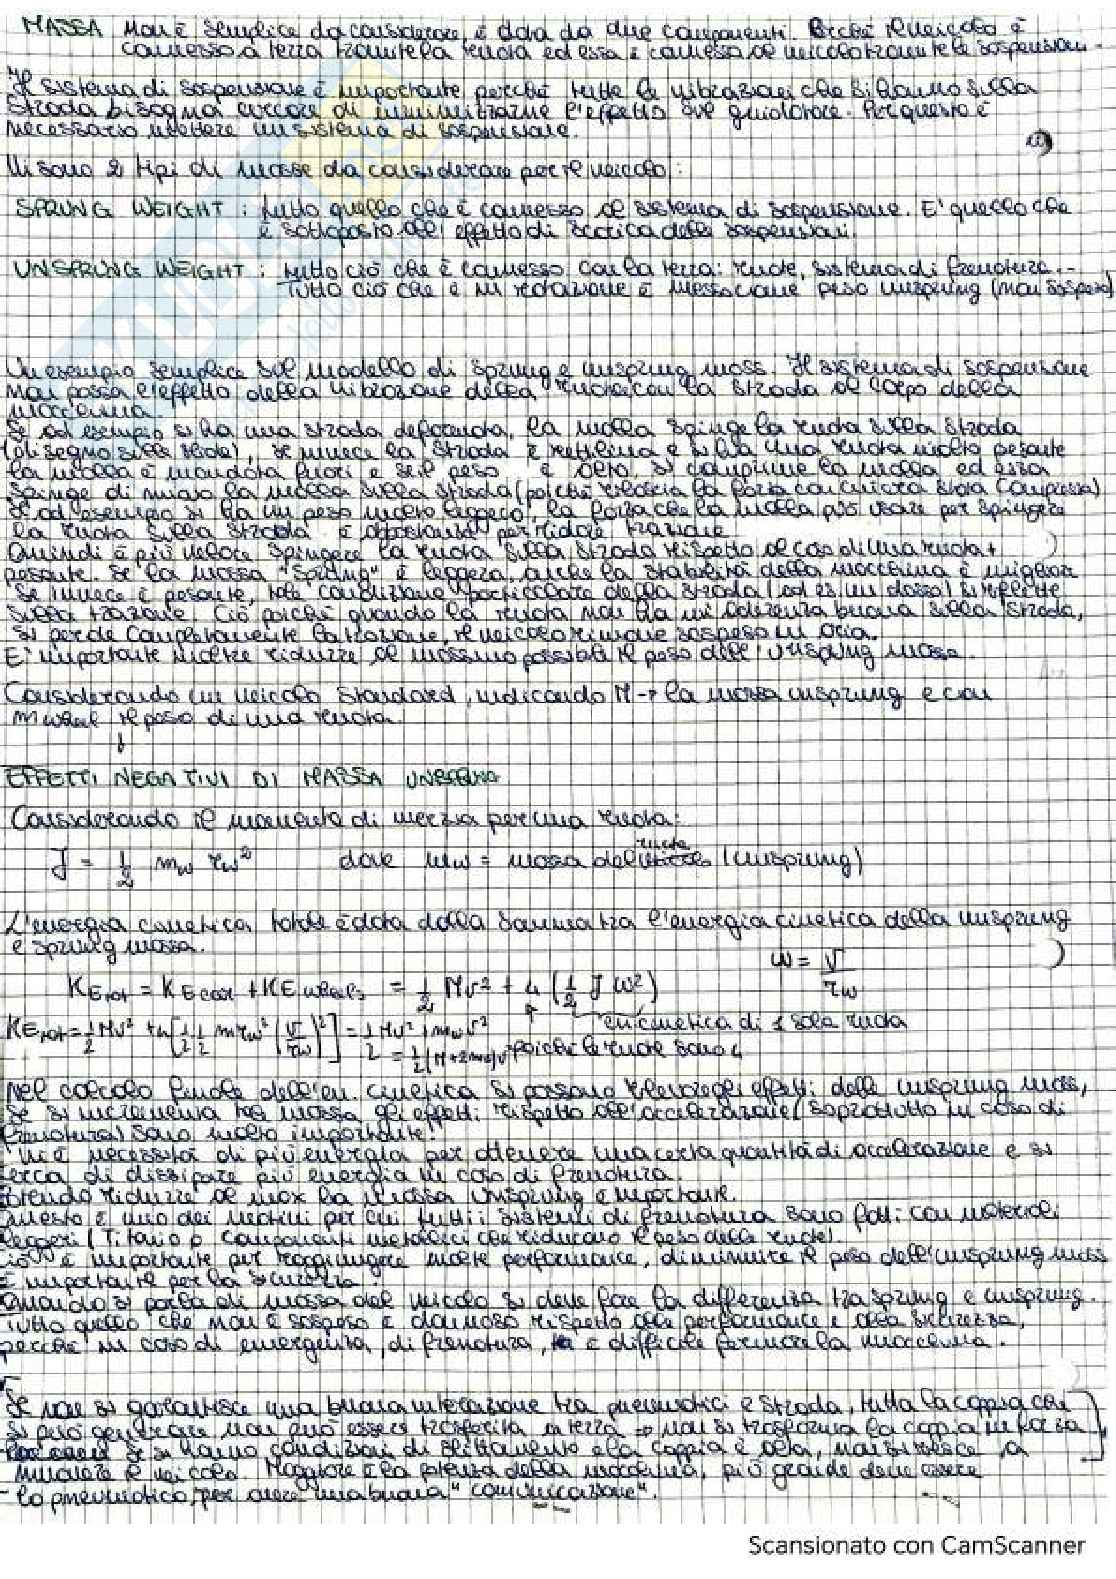 MASSA non è semplice da considerare, è data da due componenti. Perché il veicolo è
connesso a terra tramite la ruota ed essa è connessa al veicolo tramite le sospensioni.
Il sistema di sospensione è importante perché tutte le vibrazioni che si hanno sulla
strada bisogna cercare di minimizzarne l'effetto sul guidatore. Per questo è
necessario mettere un sistema di sospensione.
Vi sono 2 tipi di masse da considerare per il veicolo:
SPRUNG WEIGHT: tutto quello che è connesso al sistema di sospensione. E' quello che
è sottoposto all'effetto di scarica delle sospensioni.
UNSPRUNG WEIGHT: tutto ciò che è connesso con la terra: ruote, sistema di frenatura...
Tutto ciò che è in rotazione è messo come peso unsprung (non sospeso)
Un esempio semplice sul modello di sprung e unsprung mass. Il sistema di sospensione
non passa l'effetto della vibrazione della ruota con la strada al corpo della
macchina.
Se ad esempio si ha una strada deformata, la molla spinge la ruota sulla strada
(disegno sulle slide), se invece la strada è rettilinea e si ha una ruota molto pesante
la molla è mandata fuori e se il peso è alto, si comprime la molla ed essa
spinge di nuovo la molla sulla strada (poiché rilascia la forza con cui era stata compressa)
Se ad esempio si ha un peso molto leggero, la forza che la molla può usare per spingere
la ruota sulla strada è abbastanza per ridare trazione
Quindi è più veloce spingere la ruota sulla strada rispetto al caso di una ruota +
pesante. Se la massa "sprung" è leggera, anche la stabilità della macchina è migliore
Se invece è pesante, tale condizione particolare della strada (ad es. un dosso) si riflette
sulla trazione. Ciò poiché quando la ruota non ha un'aderenza buona sulla strada,
si perde completamente la trazione, il veicolo rimane sospeso in aria.
E' importante inoltre ridurre al massimo possibile il peso dell'unsprung mass.
Considerando un veicolo standard, indicando M → la massa unsprung e con
m wheel il peso di una ruota.
↓
EFFETTI NEGATIVI DI MASSA UNSPRUNG
Considerando il momento di inerzia per una ruota:
J = 1/2 mw rw² dove mw = massa della ruota (unsprung)
L'energia cinetica totale è data dalla somma tra l'energia cinetica della unsprung
e sprung mass.
ω = V/rw
KE,tot = KE car + KE wheels = 1/2 Mv² + 4 (1/2 J ω²)
en. cinetica di 1 sola ruota
KE,tot = 1/2 Mv² + 4[1/2 1/2 m rw² (V/rw)²] = 1/2 Mv² + mw v²
= 1/2 (M+2mw)v² poiché le ruote sono 4
Nel calcolo finale dell'en. cinetica si possono rilevare gli effetti della unsprung mass,
se si incrementa tale massa gli effetti rispetto all'accelerazione (soprattutto in caso di
frenatura) sono molto importanti.
Vi è necessità di più energia per ottenere una certa quantità di accelerazione e si
cerca di dissipare più energia in caso di frenatura.
ridurre al max la massa unsprung è importante.
Questo è uno dei motivi per cui tutti i sistemi di frenatura sono fatti con materiali
leggeri (Titanio o componenti metallici che riducano il peso delle ruote).
Ciò è importante per raggiungere molte performance, diminuire il peso dell'unsprung mass
è importante per la sicurezza.
Quando si parla di massa del veicolo si deve fare la differenza tra sprung e unsprung.
Tutto quello che non è sospeso è dannoso rispetto alle performance e alla sicurezza,
perché in caso di emergenza, di frenatura, è difficile fermare la macchina.
Se non si garantisce una buona interazione tra pneumatici e strada, tutta la coppia che
si può generare non può essere trasferita a terra ⇒ non si trasforma la coppia in forza
Se si hanno condizioni di slittamento e la coppia è alta, non si riesce a
muovere il veicolo. Maggiore è la potenza della macchina, più grande deve essere
lo pneumatico, per avere una buona "comunicazione".
Scansionato con CamScanner